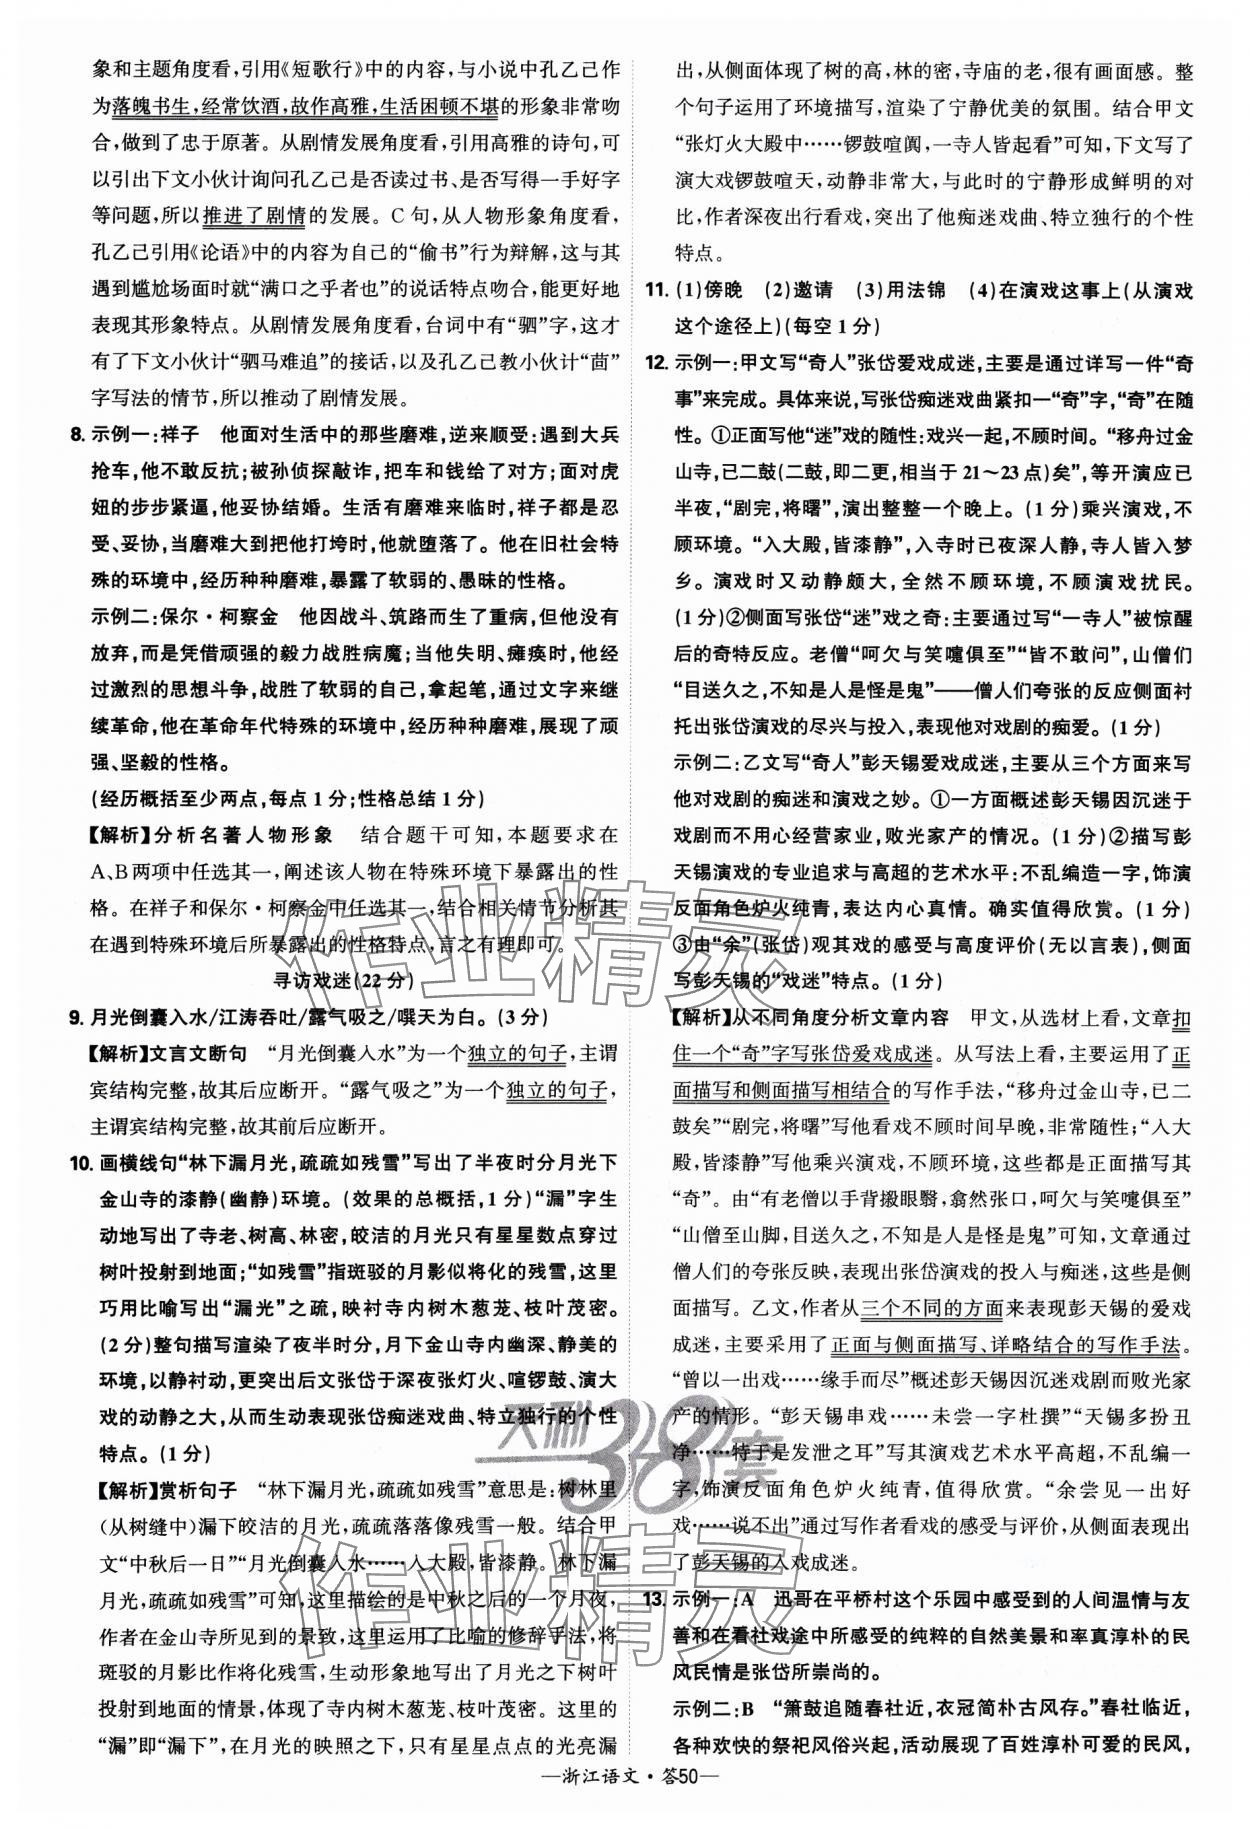 象和主题角度看,引用《短歌行》中的内容,与小说中孔乙己作
为落魄书生,经常饮酒,故作高雅,生活困顿不堪的形象非常吻
合,做到了忠于原著。从剧情发展角度看,引用高雅的诗句,可
以引出下文小伙计询问孔乙己是否读过书、是否写得一手好字
等问题,所以推进了剧情的发展。C句,从人物形象角度看,
孔乙己引用《论语》中的内容为自己的“偷书”行为辩解,这与其
遇到尴尬场面时就“满口之乎者也”的说话特点吻合,能更好地
表现其形象特点。从剧情发展角度看,台词中有“驷”字,这才
有了下文小伙计“驷马难追”的接话,以及孔乙己教小伙计“茴”
字写法的情节,所以推动了剧情发展。
8. 示例一:祥子 他面对生活中的那些磨难,逆来顺受:遇到大兵
抢车,他不敢反抗;被孙侦探敲诈,把车和钱给了对方;面对虎
妞的步步紧逼,他妥协结婚。生活有磨难来临时,祥子都是忍
受、妥协,当磨难大到把他打垮时,他就堕落了。他在旧社会特
殊的环境中,经历种种磨难,暴露了软弱的、愚昧的性格。
示例二:保尔·柯察金 他因战斗、筑路而生了重病,但他没有
放弃,而是凭借顽强的毅力战胜病魔;当他失明、瘫痪时,他经
过激烈的思想斗争,战胜了软弱的自己,拿起笔,通过文字来继
续革命,他在革命年代特殊的环境中,经历种种磨难,展现了顽
强、坚毅的性格。
(经历概括至少两点,每点1分;性格总结1分)
【解析】分析名著人物形象 结合题干可知,本题要求在
A、B两项中任选其一,阐述该人物在特殊环境下暴露出的性
格。在祥子和保尔·柯察金中任选其一,结合相关情节分析其
在遇到特殊环境后所暴露出的性格特点,言之有理即可。
寻访戏迷(22分)
9. 月光倒囊入水/江涛吞吐/露气吸之/噀天为白。(3分)
【解析】文言文断句 “月光倒囊入水”为一个独立的句子,主谓
宾结构完整,故其后应断开。“露气吸之”为一个独立的句子,
主谓宾结构完整,故其前后应断开。
10. 画横线句“林下漏月光,疏疏如残雪”写出了半夜时分月光下
金山寺的漆静(幽静)环境。(效果的总概括,1分)“漏”字生
动地写出了寺老、树高、林密,皎洁的月光只有星星数点穿过
树叶投射到地面;“如残雪”指斑驳的月影似将化的残雪,这里
巧用比喻写出“漏光”之疏,映衬寺内树木葱茏、枝叶茂密。
(2分)整句描写渲染了夜半时分,月下金山寺内幽深、静美的
环境,以静衬动,更突出后文张岱于深夜张灯火、喧锣鼓、演大
戏的动静之大,从而生动表现张岱痴迷戏曲、特立独行的个性
特点。(1分)
【解析】赏析句子 “林下漏月光,疏疏如残雪”意思是:树林里
(从树缝中)漏下皎洁的月光,疏疏落落像残雪一般。结合甲
文“中秋后一日”“月光倒囊入水……入大殿,皆漆静。林下漏
月光,疏疏如残雪”可知,这里描绘的是中秋之后的一个月夜,
作者在金山寺所见到的景致,这里运用了比喻的修辞手法,将
斑驳的月影比作将化残雪,生动形象地写出了月光下树叶
投射到地面的情景,体现了寺内树木葱茏、枝叶茂密。这里的
“漏”即“漏下”,在月光的映照之下,只有星星点点的光亮漏
出,从侧面体现了树的高,林的密,寺庙的老,很有画面感。整
个句子运用了环境描写,渲染了宁静优美的氛围。结合甲文
“张灯火大殿中……锣鼓喧阗,一寺人皆起看”可知,下文写了
演大戏锣鼓喧天,动静非常大,与此时的宁静形成鲜明的对
比,作者深夜出行看戏,突出了他痴迷戏曲、特立独行的个性
特点。
11. (1)傍晚 (2)邀请 (3)用法锦 (4)在演戏这事上(从演戏
这个途径上)(每空1分)
12. 示例一:甲文写“奇人”张岱爱戏成迷,主要是通过详写一件“奇
事”来完成。具体来说,写张岱痴迷戏曲紧扣一“奇”字,“奇”在随
性。①正面写他“迷”戏的随性:戏兴一起,不顾时间。“移舟过金
山寺,已二鼓(二鼓,即二更,相当于21～23点)矣”,等开演应已
半夜,“剧完,将曙”,演出整整一个晚上。(1分)乘兴演戏,不
顾环境。“入大殿,皆漆静”,入寺时已夜深人静,寺人皆入梦
乡。演戏时又动静颇大,全然不顾环境,不顾演戏扰民。
(1分)②侧面写张岱“迷”戏之奇:主要通过写“一寺人”被惊醒
后的奇特反应。老僧“呵欠与笑嚏俱至”“皆不敢问”,山僧们
“目送久之,不知是人是怪是鬼”——僧人们夸张的反应侧面衬
托出张岱演戏的尽兴与投入,表现他对戏剧的痴爱。(1分)
示例二:乙文写“奇人”彭天锡爱戏成迷,主要从三个方面来写
他对戏剧的痴迷和演戏之妙。①一方面概述彭天锡因沉迷于
戏剧而不用心经营家业,败光家产的情况。(1分)②描写彭
天锡演戏的专业追求与高超的艺术水平:不乱编造一字,饰演
反面角色炉火纯青,表达内心真情。确实值得欣赏。(1分)
③由“余”(张岱)观其戏的感受与高度评价(无以言表),侧面
写彭天锡的“戏迷”特点。(1分)
【解析】从不同角度分析文章内容 甲文,从选材上看,文章扣
住一个“奇”字写张岱爱戏成迷。从写法上看,主要运用了正
面描写和侧面描写相结合的写作手法,“移舟过金山寺,已二
鼓矣”“剧完,将曙”写他看戏不顾时间早晚,非常随性;“入大
殿,皆漆静”写他乘兴演戏,不顾环境,这些都是正面描写其
“奇”。由“有老僧以手背摋眼翳,翕然张口,呵欠与笑嚏俱至”
“山僧至山脚,目送久之,不知是人是怪是鬼”可知,文章通过
僧人们的夸张反映,表现出张岱演戏的投入与痴迷,这些是侧
面描写。乙文,作者从三个不同的方面来表现彭天锡的爱戏
成迷,主要采用了正面与侧面描写、详略结合的写作手法。
“曾以一出戏……缘手而尽”概述彭天锡因沉迷戏剧而败光家
产的情形。“彭天锡串戏……未尝一字杜撰”“天锡多扮丑
净……特于是发泄之耳”写其演戏艺术水平高超,不乱编一
字,饰演反面角色炉火纯青,值得欣赏。“余尝见一出好
戏……说不出”通过写作者看戏的感受与评价,从侧面表现出
了彭天锡的入戏成迷。
13. 示例一:A 迅哥在平桥村这个乐园中感受到的人间温情与友
善和在看社戏途中所感受的纯粹的自然美景和率真淳朴的民
风民情是张岱所崇尚的。
示例二:B “箫鼓追随春社近,衣冠简朴古风存。”春社临近,
各种欢快的祭祀风俗兴起,活动展现了百姓淳朴可爱的民风,
作业精灵
天利38套
作业精灵
—浙江语文·答50—